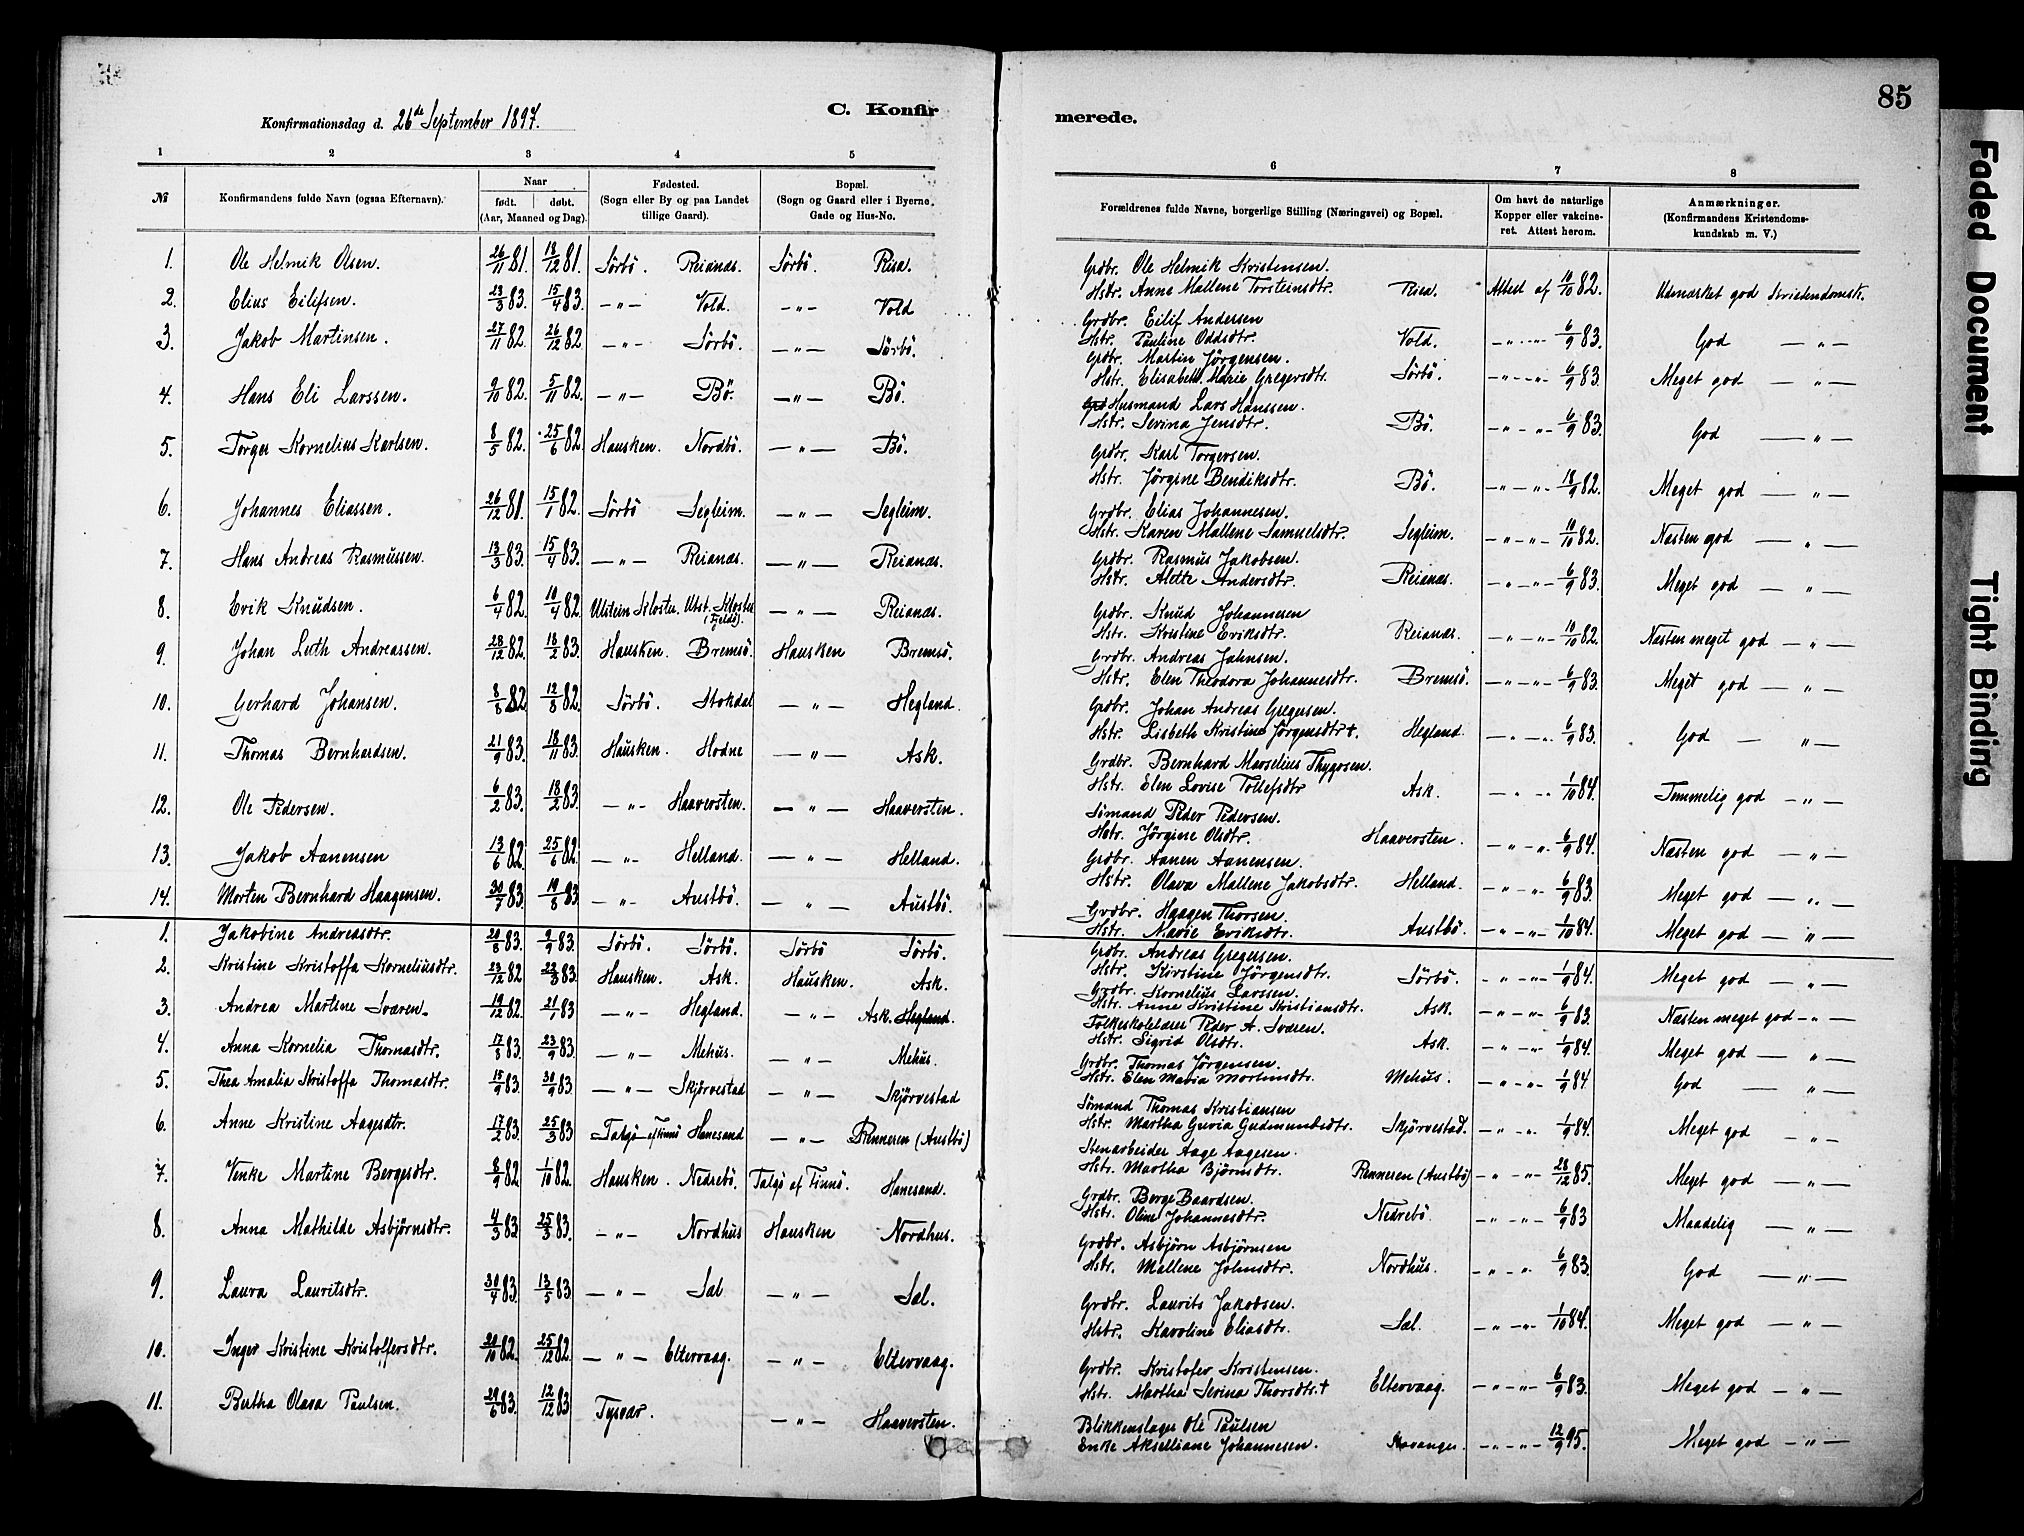 85
Konfirmationsdag d. 26de September 1897.
C. Konfir
merede.
1 2 3 4 5 6 7 8
№ Konfirmandens fulde Navn (ogsaa Efternavn). Naar født. døbt. (Aar, Maaned og Dag). Fødested. (Sogn eller By og paa Landet tillige Gaard). Bopæl. (Sogn og Gaard eller i Byerne, Gade og Hus-No. Forældrenes fulde Navne, borgerlige Stilling (Næringsvei) og Bopæl. Om havt de naturlige Kopper eller vakcineret. Attest herom. Anmærkninger. (Konfirmandens Kristendomskundskab m. V.)
1. Ole Helmik Olsen. 26/11 81. 18/12 81. Sörbö. Reianæs. Sörbö. Risa. Grdbr. Ole Helmik Kristensen.
Hstr. Anne Mallene Torsteinsdtr. Risa. Attest af 10/10 82. Udmærket god Kristendomsk.
2. Elius Eilifsen. 23/3 83. 15/4 83. —"— Vold. —"— Vold Grdbr. Eilif Andersen
Hstr. Pauline Oddsdtr. Vold. —"—"— 6/9 83. God —"—
3. Jakob Martinsen. 27/11 82. 26/12 82 —"— Sörbö. —"— Sörbö. Grdbr. Martin Jörgensen.
Hstr. Elisabeth Marie Gregersdtr. Sörbö. —"—"— 6/9 83. Meget god —"—
4. Hans Eli Larssen. 9/10 82. 5/11 82. —"— Bö. —"— Bö. Husmand Lars Hanssen.
Hstr. Serina Jensdtr. Bö. —"—"— 6/9 83. God —"—
5. Torger Kornelius Karlsen. 8/5 82. 25/6 82. Hausken. Nordbö. —"— Bö. Grdbr. Karl Torgersen.
Hstr. Jörgine Bendiksdtr. Bö. —"—"— 18/9 82. Meget god —"—
6. Johannes Eliassen. 26/12 81. 15/1 82. Sörbö Segleim. —"— Segleim. Grdbr. Elias Johannesen.
Hstr. Karen Mallene Samuelsdtr. Segleim. —"—"— 10/10 82. Næsten god —"—
7. Hans Andreas Rasmussen. 13/3 83. 15/4 83. —"— Reianæs. —"— Reianæs. Grdbr. Rasmus Jakobsen.
Hstr. Alette Andersdtr. Reianæs. —"—"— 6/9 83. Meget god —"—
8. Erik Knudsen. 6/4 82. 10/4 82. Utstein Kloster. Utst. Kloster (Fjeld). —"— Reianæs. Grdbr. Knud Johannesen
Hstr. Kristine Eriksdtr. Reianæs. —"—"— 10/10 82. Næsten meget god —"—
9. Johan Luth Andreassen. 28/12 82. 18/2 83. Hausken. Bremsö. Hausken Bremsö. Grdbr. Andreas Jahnsen.
Hstr. Elen Theodora Johannesdtr. Bremsö. —"—"— 6/9 83. Meget god —"—
10. Gerhard Johansen. 8/8 82 12/8 82. Sörbö. Stokdal —"— Hegland. Grdbr. Johan Andreas Gregersen.
Hstr. Lisbeth Kristine Jörgensdtr †. Hegland. —"—"— 6/9 83. God —"—
11. Thomas Bernhardsen. 21/9 83. 18/11 83. Hausken. Hodne —"— Ask. Grdbr. Bernhard Marselius Thygesen.
Hstr. Elen Lovise Tollefsdtr Ask. —"—"— 1/10 84. Temmelig god —"—
12. Ole Pedersen. 6/2 83. 18/2 83. —"— Haaversten. —"— Haaversten. Sömand Peder Pedersen.
Hstr. Jörgine Olsdtr. Haaversten. —"—"— 6/9 84. Næsten god —"—
13. Jakob Aanensen 13/6 82. 25/6 82. —"— Helland. —"— Helland. Grdbr. Aanen Aanensen.
Hstr. Olava Mallene Jakobsdtr. Helland. —"—"— 6/9 83. Meget god —"—
14. Morten Bernhard Haagensen. 30/7 83. 19/8 83 —"— Austbö. —"— Austbö. Grdbr. Haagen Thorsen.
Hstr. Marie Eriksdtr. Austbö. —"—"— 1/10 84. Meget god —"—
1. Jakobine Andreasdtr. 20/8 83. 9/9 83. Sörbö. Sörbö. Sörbö Sörbö. Grdbr. Andreas Gregersen.
Hstr. Kirstine Jörgensdtr. Sörbö. —"—"— 1/9 84. Meget god —"—
2. Kristine Kristoffa Korneliusdtr. 23/12 82 22/3 83. Hausken. Ask. Hausken. Ask. Grdbr. Kornelius Larssen.
Hstr. Anne Kristine Kristiansdtr. Ask. —"—"— 6/9 83. Næsten meget god —"—
3. Andrea Martene Sværen. 19/12 82. 21/1 83 —"— Hegland. —"— Ask. Hegland. Folkeskolelærer Peder A. Sværen.
Hstr. Sigrid Olsdtr. Ask. —"—"— 1/9 84. Meget god —"—
4. Anna Kornelia Thomasdtr. 17/8 83. 23/9 83. —"— Mehus. —"— Mehus. Grdbr. Thomas Jörgensen.
Hstr. Elen Maria Mortensdtr. Mehus. —"—"— 1/9 84 God —"—
5. Thea Amalia Kristoffa Thomasdtr. 15/9 83. 30/9 83. —"— Skjörvestad —"— Skjörvestad Sömand Thomas Kristiansen
Hstr. Martha Guria Gudmundsdtr. Skjörvestad. —"—"— 1/9 84. Meget god —"—
6. Anne Kristine Aagesdtr. 17/2 83. 25/3 83 Talgö af Finnö Hanesand —"— Renneren (Austbö) Stenarbeider Aage Aagesen.
Hstr. Martha Björnsdtr. Renneren (Austbö) —"—"— 28/12 85. Meget god —"—
7. Venke Martine Bergesdtr. 8/9 82 1/10 82. Hausken. Nedrebö. Talgö af Finnö. Hanesand. Grdbr. Berge Baardsen.
Hstr. Oline Johannesdtr. Nedrebö. —"—"— 6/9 83 Maadelig —"—
8. Anna Mathilde Asbjörnsdtr. 4/3 83 25/3 83. —"— Nordhus Hausken Nordhus. Grdbr. Asbjörn Asbjörnsen
Hstr. Mallene Johnsdtr. Nordhus. —"—"— 6/9 83. God —"—
9. Laura Lauritsdtr. 30/4 83. 13/5 83. —"— Sal —"— Sal. Grdbr. Laurits Jakobsen.
Hstr. Karoline Eliasdtr. Sal. —"—"— 1/10 84. Meget god —"—
10. Inger Kristine Kristoffersdtr. 20/10 82. 25/12 82. —"— Eltervaag. —"— Eltervaag. Grdbr. Kristofer Kristensen.
Hstr. Martha Serina Thorsdtr. † Eltervaag. —"—"— 6/9 83. Meget god —"—
11. Bertha Olava Paulsen. 29/6 83. 12/12 83 Tysvær. —"— Haaversten. Blikkenslager Ole Paulsen
Enke Akselliane Johannesen. Stavanger. —"—"— 12/9 95. Meget god —"—
Faded Document
Tight Binding